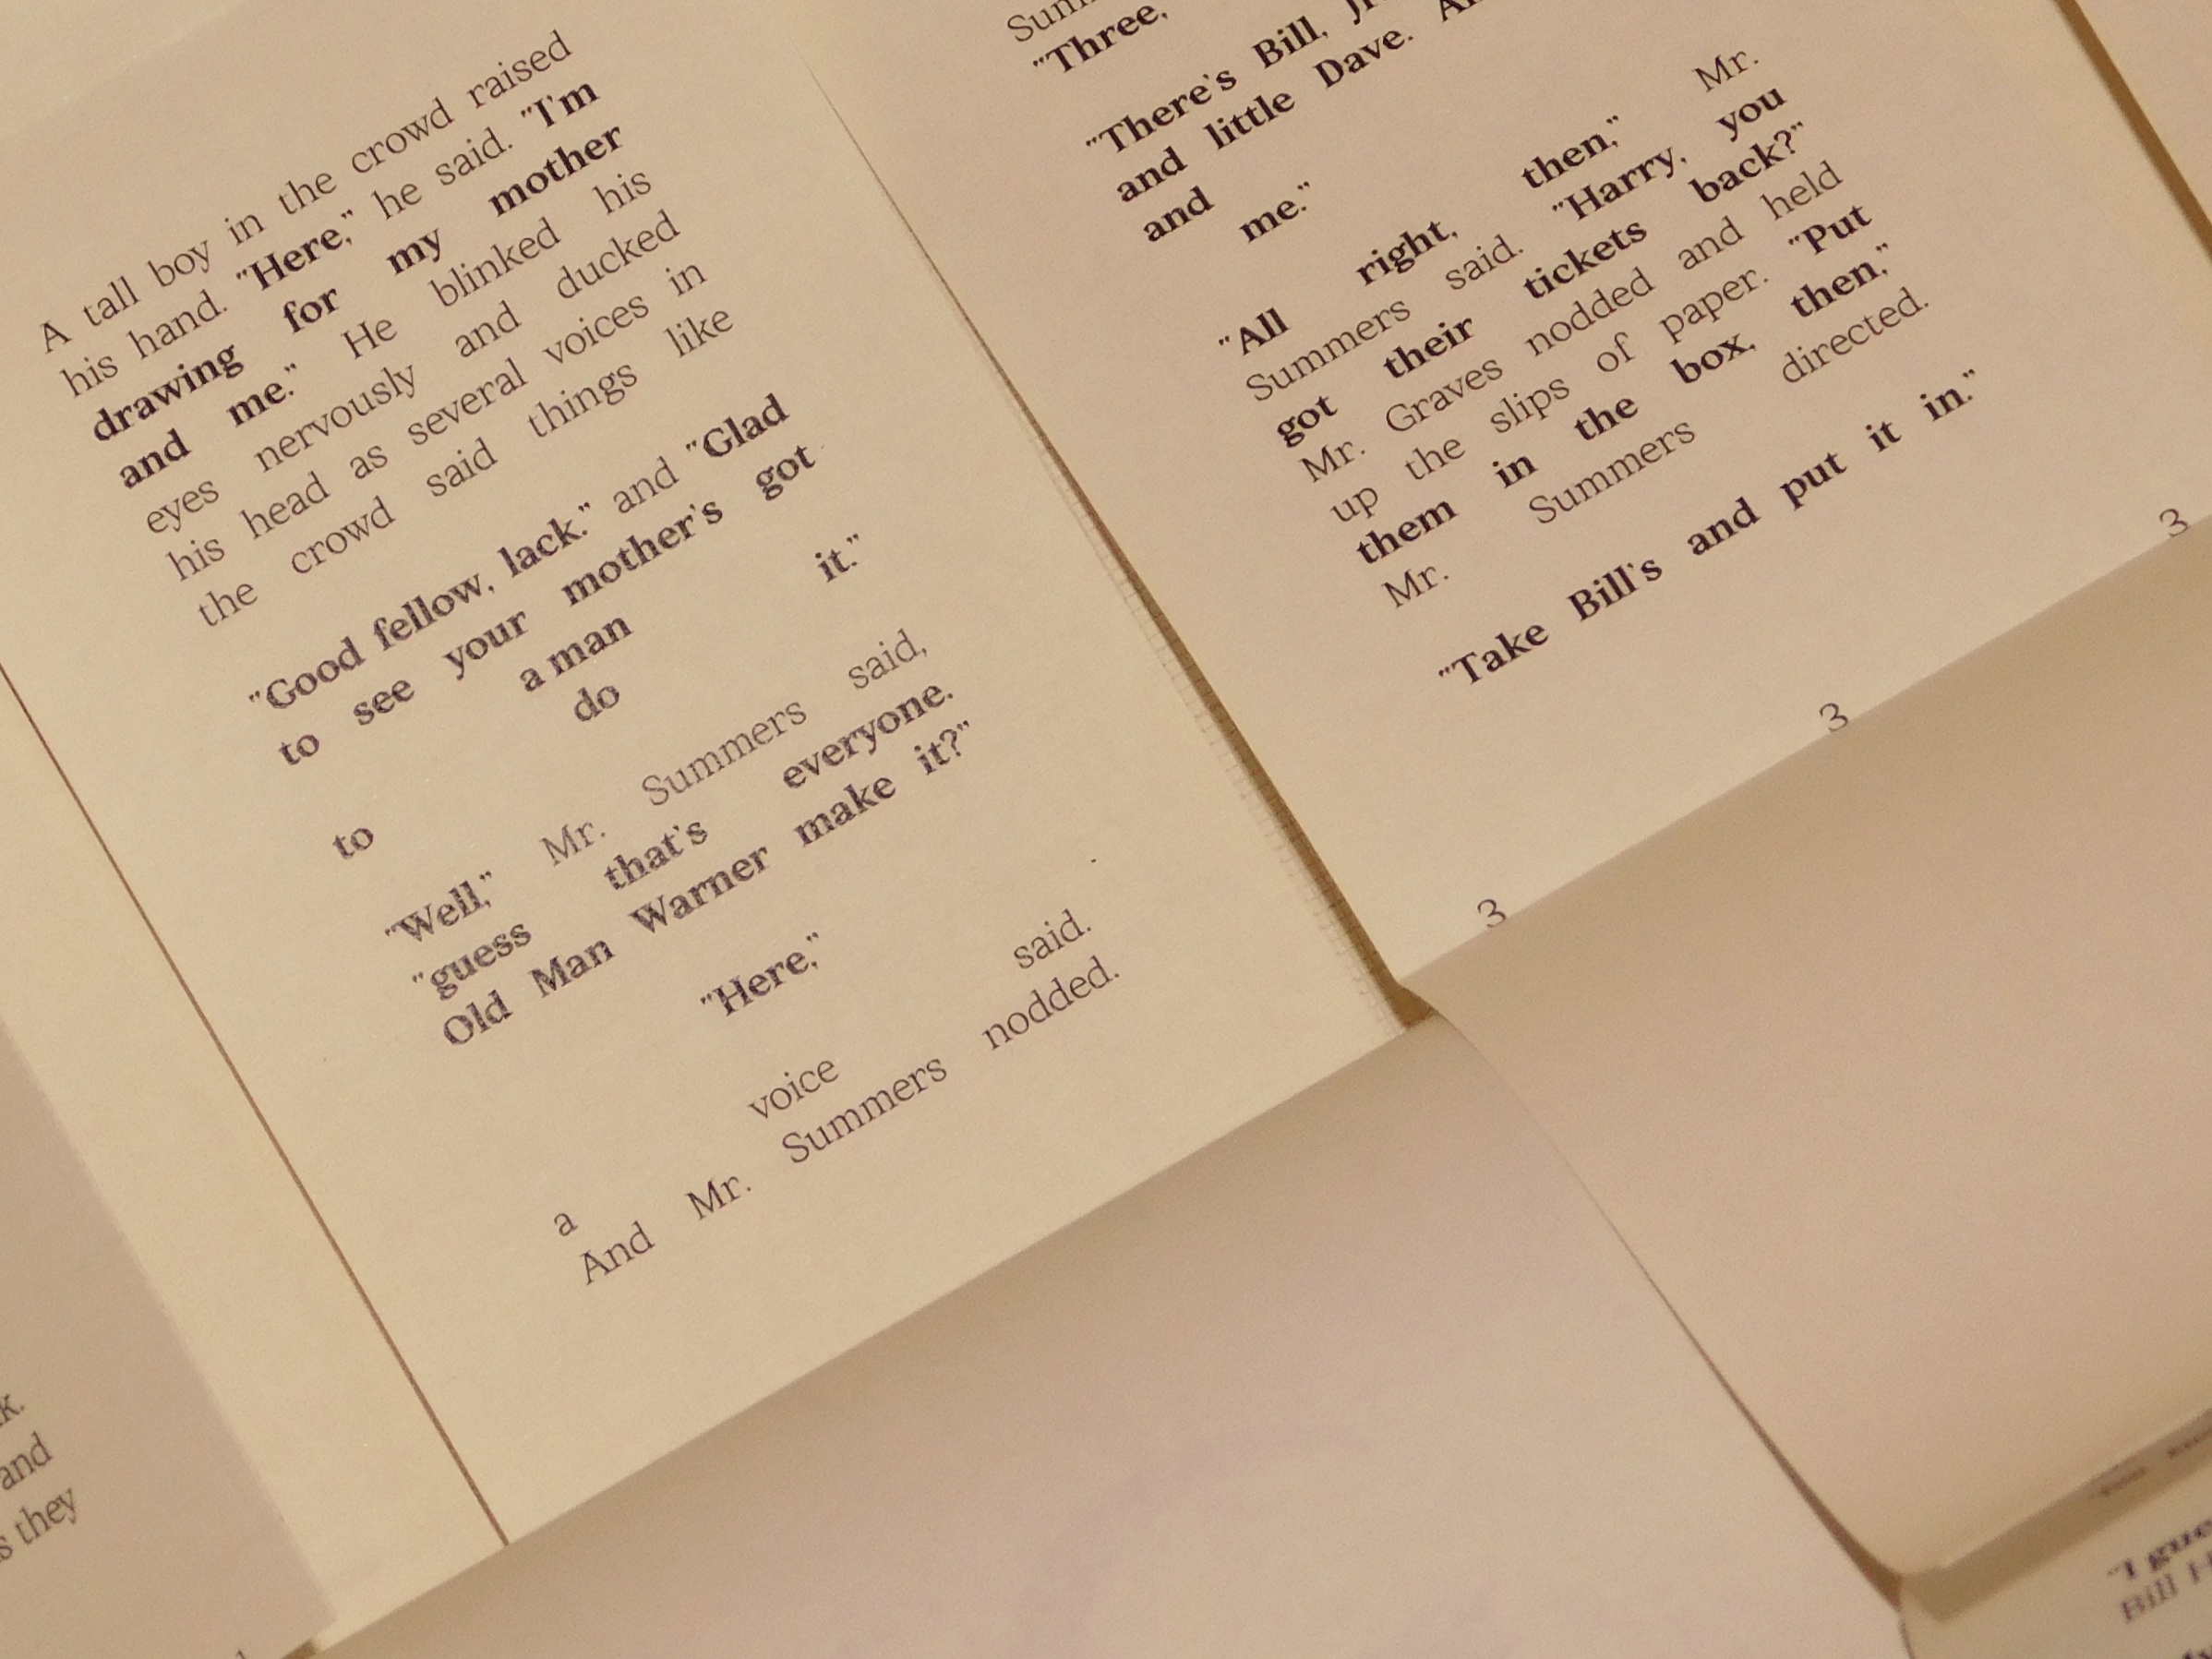 A tall boy in the crowd raised
his hand. "Here," he said. "I'm
drawing for my mother
and me." He blinked his
eyes nervously and ducked
his head as several voices in
the crowd said things like
"Good fellow, lack." and "Glad
to see your mother's got
a man it."
do
to
"Well," Mr. Summers said,
"guess that's everyone.
Old Man Warner make it?"
"Here," said.
voice
a
And Mr. Summers nodded.
"Three,
"There's Bill,
and little Dave.
and me."
"All right, then," Mr.
Summers said. "Harry, you
got their tickets back?"
Mr. Graves nodded and held
up the slips of paper. "Put
them in the box, then,"
Mr. Summers directed.
"Take Bill's and put it in."
3
3
3
and
they
Bill